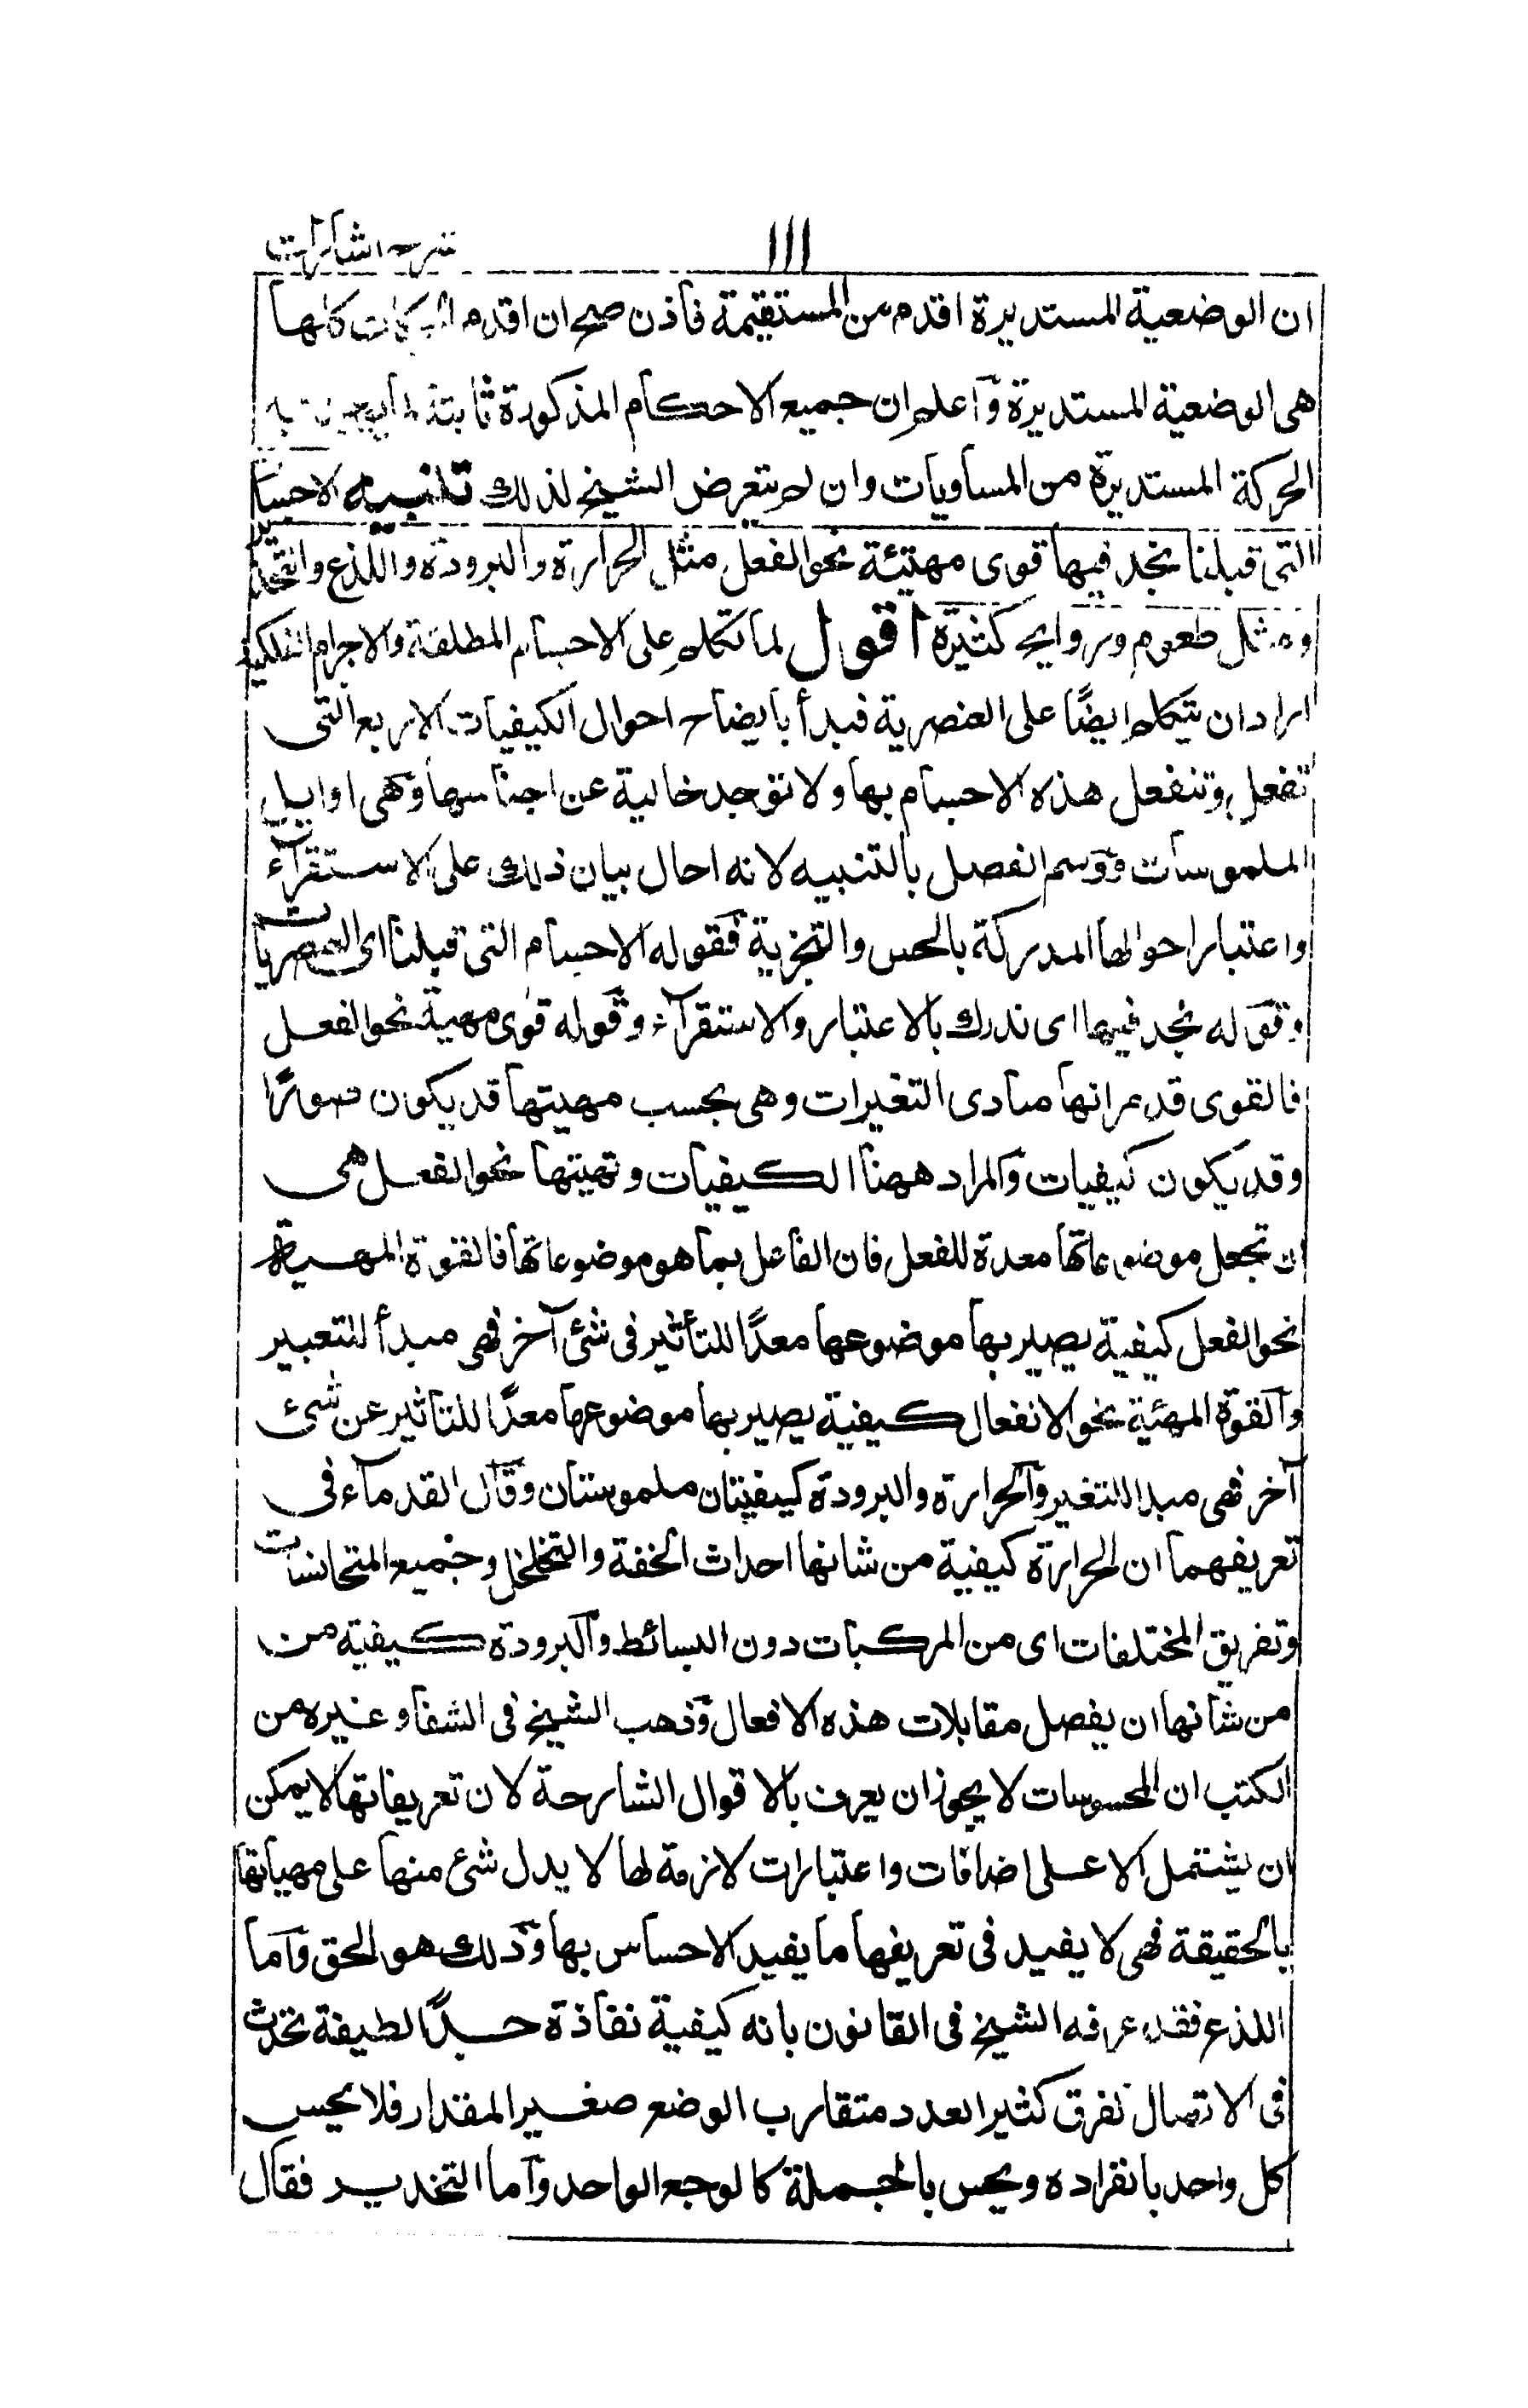 ١١١
شرح اشارات
ان الوضعية المستديرة اقدم من المستقيمة فاذن صح ان اقدم الحركات كلها
هى الوضعية المستديرة وآعلم ان جميع الاحكام المذكورة ثابتة لما
الحركة المستديرة من المساويات وان لم يتعرض الشيخ لذلك تنبيه الاجسام
التى قبلنا نجد فيها قوى مهيئة نحو الفعل مثل الحرارة والبرودة واللذع والتخدير
ومثل طعوم وروايح كثيرة اقول لما تكلم على الاجسام المطلقة والاجرام الفلكية
اراد ان يتكلم ايضًا على العنصرية فبدأ بايضاح احوال الكيفيات الاربع التى
تفعل وتنفعل هذه الاجسام بها ولا توجد خالية عن اجناسها وهى اوايل
الملموسات ووسم الفصل بالتنبيه لانه احال بيان ذلك على الاستقرآء
واعتبار احوالها المدركة بالحس والتجربة فقوله الاجسام التى قبلنا اى العنصريات
وقوله نجد فيها اى ندرك بالاعتبار والاستقرآء وقوله قوى مهية نحو الفعل
فالقوى قد مر انها مبادى التغيرات وهى بحسب مهيتها قد يكون صورًا
وقد يكون كيفيات وآلمراد ههنا الكيفيات وتهيتها نحو الفعل هى
ان تجعل موضوعاتها معدة للفعل فان الفاعل بها هو موضوعاتها فالقوة المهية
نحو الفعل كيفية يصير بها موضوعها معدًا للتأثير فى شئ آخر فهى مبدأ للتعبير
وآلقوة المهئية نحو الانفعال كيفية يصير بها موضوعها معدًا للتاثير عن شئ
آخر فهى مبدا للتغير وآلحرارة والبرودة كيفيتان ملموستان وقآل القدمآء فى
تعريفهما ان الحرارة كيفية من شانها احداث الخفة والتخلخل وجميع المتجانسات
وتفريق المختلفات اى من المركبات دون البسائط وآلبرودة كيفية من
من شانها ان يفصل مقابلات هذه الافعال وذهب الشيخ فى الشفا وغيره من
الكتب ان المحسوسات لا يجوز ان يعرف بالاقوال الشارحة لان تعريفاتها لا يمكن
ان يشتمل الا على اضافات واعتبارات لازمة لها لا يدل شئ منها على مهياتها
بالحقيقة فهى لا يفيد فى تعريفها ما يفيد الاحساس بها وذلك هو الحق وآما
اللذع فقد عرفه الشيخ فى القانون بانه كيفية نفاذة جدًا لطيفة تحدث
فى الاتصال تفرق كثير العدد متقارب الوضع صغير المقدار فلا يحس
كل واحد بانفراده ويحس بالجملة كالوجع الواحد وآما التخدير فقال